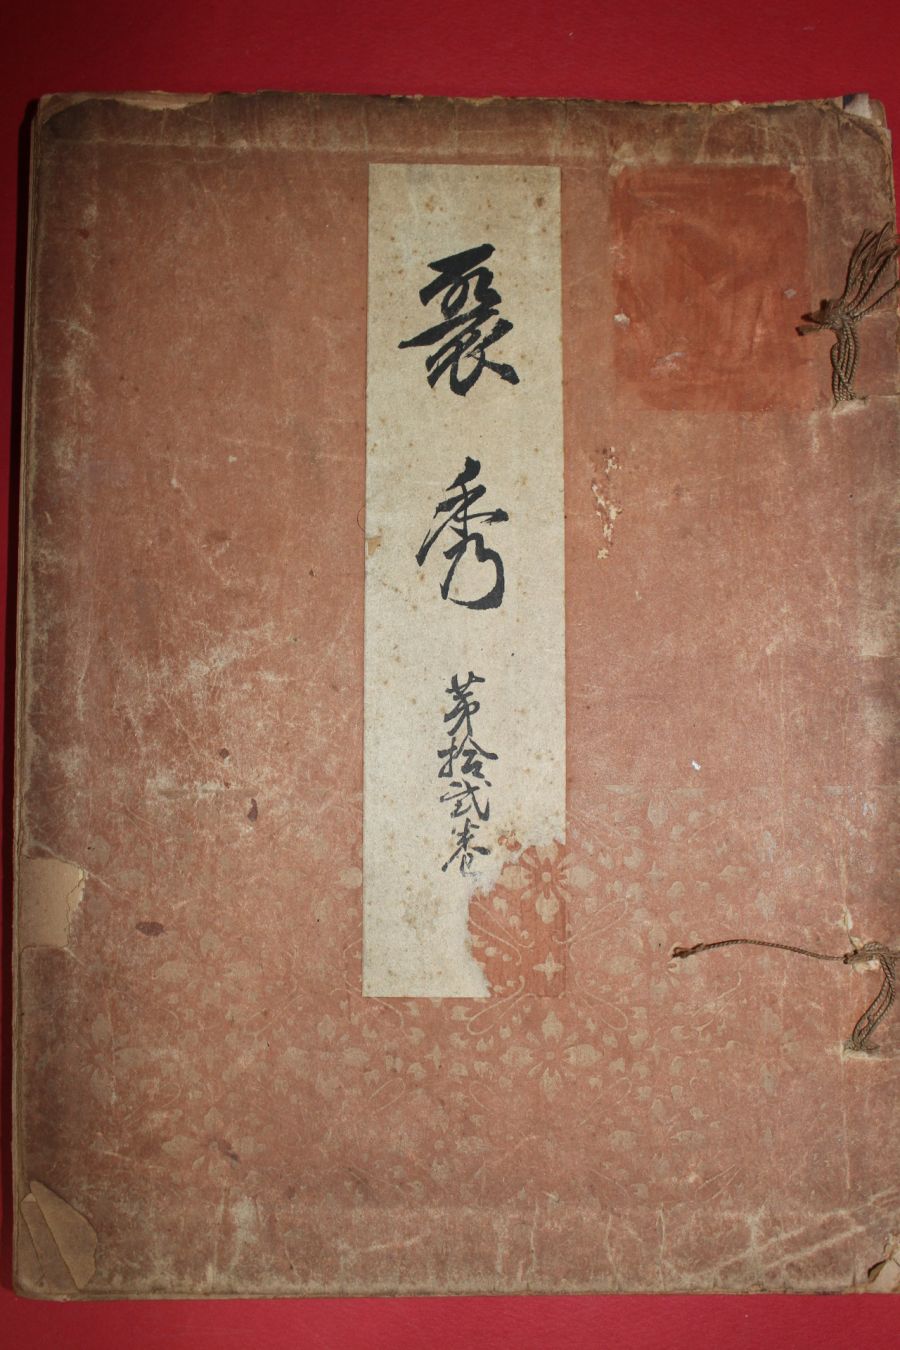 聚秀
第拾弐巻